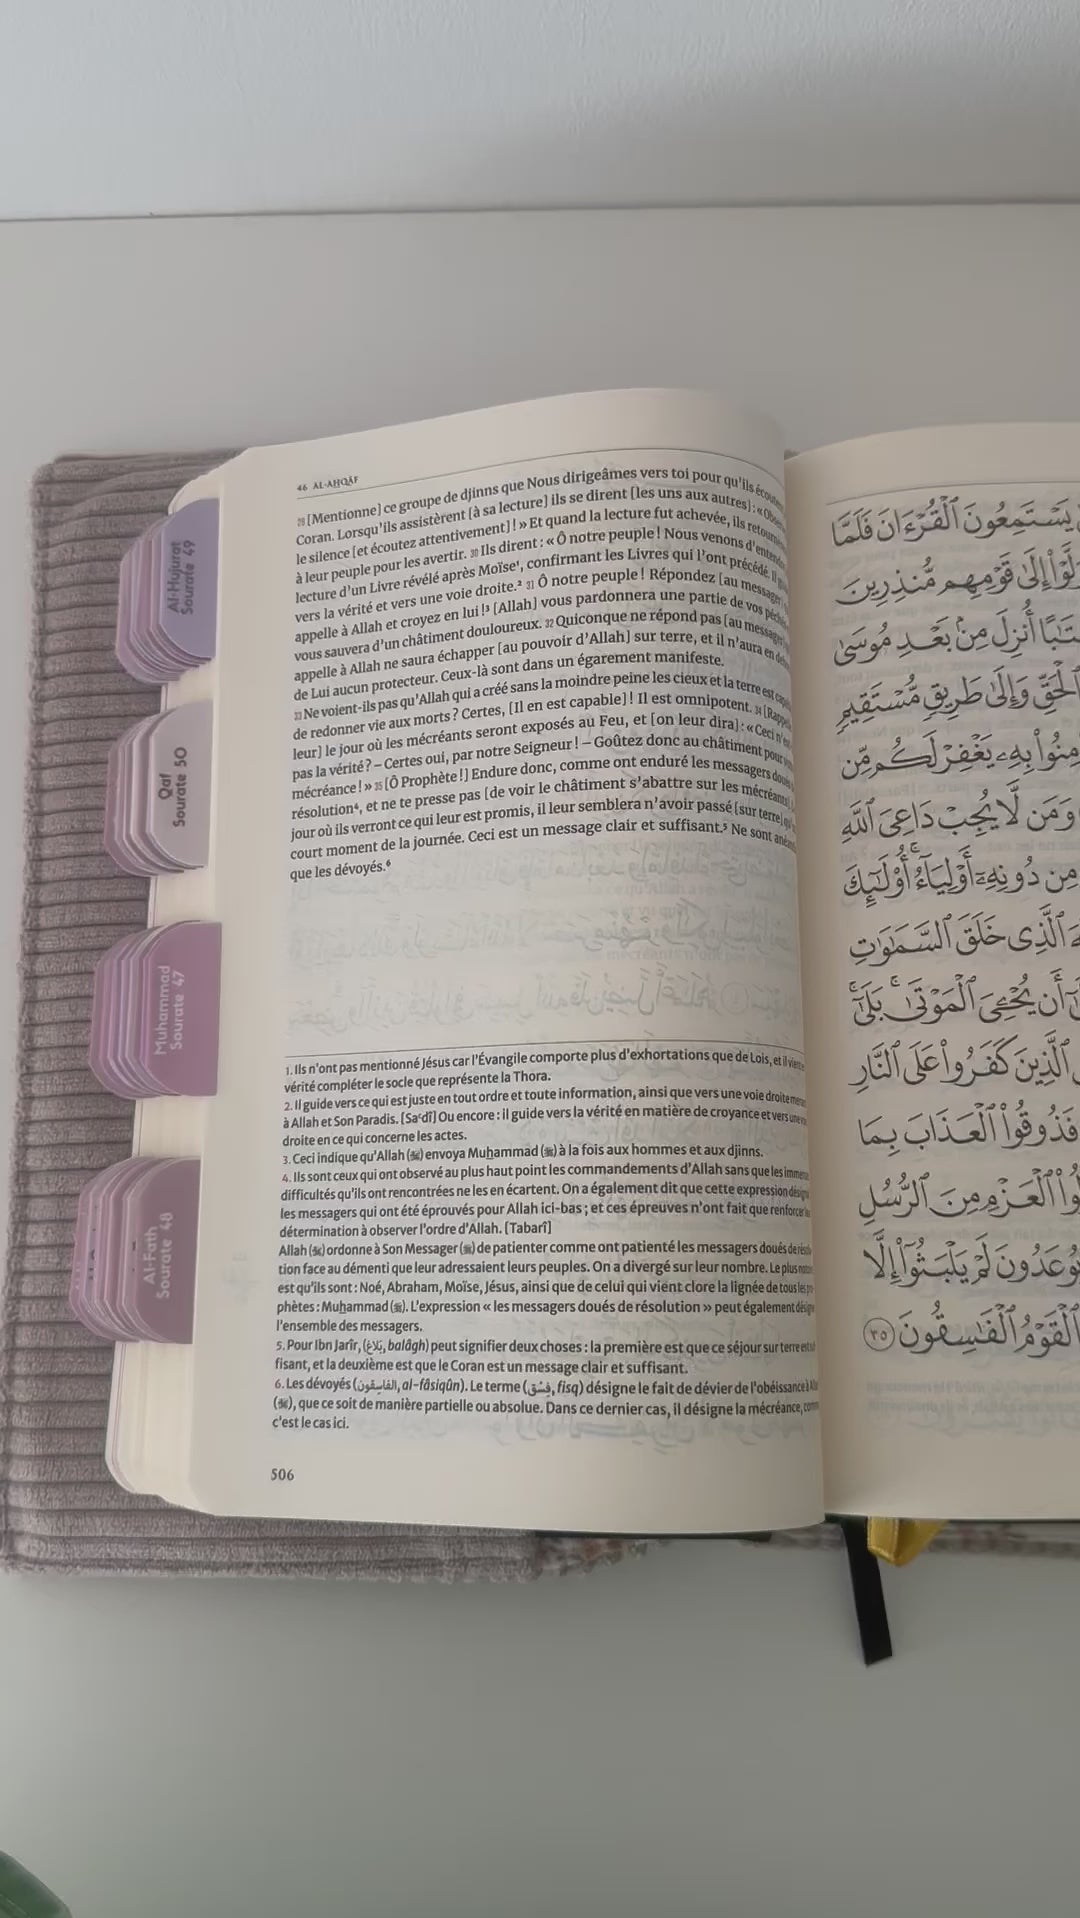 46 AL-AHQÂF
29 [Mentionne] ce groupe de djinns que Nous dirigeâmes vers toi pour qu'ils
Coran. Lorsqu'ils assistèrent [à sa lecture] ils se dirent [les uns aux autres] : «
le silence [et écoutez attentivement] ! » Et quand la lecture fut achevée, ils
à leur peuple pour les avertir. 30 Ils dirent : « Ô notre peuple ! Nous venons d'entendre
lecture d'un Livre révélé après Moïse¹, confirmant les Livres qui l'ont précédé. Il
vers la vérité et vers une voie droite.² 31 Ô notre peuple ! Répondez [au messager]
appelle à Allah et croyez en lui !³ [Allah] vous pardonnera une partie de vos
vous sauvera d'un châtiment douloureux. 32 Quiconque ne répond pas [au messager]
appelle à Allah ne saura échapper [au pouvoir d'Allah] sur terre, et il n'aura en
de Lui aucun protecteur. Ceux-là sont dans un égarement manifeste.
33 Ne voient-ils pas qu'Allah qui a créé sans la moindre peine les cieux et la terre est
de redonner vie aux morts ? Certes, [Il en est capable] ! Il est omnipotent. 34
leur] le jour où les mécréants seront exposés au Feu, et [on leur dira] : « Ceci
pas la vérité ? – Certes oui, par notre Seigneur ! – Goûtez donc au châtiment pour
mécréance ! » 35 [Ô Prophète !] Endure donc, comme ont enduré les messagers doués
résolution⁴, et ne te presse pas [de voir le châtiment s'abattre sur les mécréants]
jour où ils verront ce qui leur est promis, il leur semblera n'avoir passé [sur terre]
court moment de la journée. Ceci est un message clair et suffisant.⁵ Ne sont
que les dévoyés.⁶
1. Ils n'ont pas mentionné Jésus car l'Évangile comporte plus d'exhortations que de Lois, et il
vérité compléter le socle que représente la Thora.
2. Il guide vers ce qui est juste en tout ordre et toute information, ainsi que vers une voie droite
à Allah et Son Paradis. [Saʿdî] Ou encore : il guide vers la vérité en matière de croyance et vers
droite en ce qui concerne les actes.
3. Ceci indique qu'Allah (ﷻ) envoya Muhammad (ﷺ) à la fois aux hommes et aux djinns.
4. Ils sont ceux qui ont observé au plus haut point les commandements d'Allah sans que les
difficultés qu'ils ont rencontrées ne les en écartent. On a également dit que cette expression
les messagers qui ont été éprouvés pour Allah ici-bas ; et ces épreuves n'ont fait que renforcer
détermination à observer l'ordre d'Allah. [Tabarî]
Allah (ﷻ) ordonne à Son Messager (ﷺ) de patienter comme ont patienté les messagers doués de
tion face au démenti que leur adressaient leurs peuples. On a divergé sur leur nombre. Le plus
est qu'ils sont : Noé, Abraham, Moïse, Jésus, ainsi que de celui qui vient clore la lignée de tous les
phètes : Muhammad (ﷺ). L'expression « les messagers doués de résolution » peut également
l'ensemble des messagers.
5. Pour Ibn Jarîr, (بَلَاغٌ, balâgh) peut signifier deux choses : la première est que ce séjour sur terre
fisant, et la deuxième est que le Coran est un message clair et suffisant.
6. Les dévoyés (الفَاسِقُون, al-fâsiqûn). Le terme (فِسْق, fisq) désigne le fait de dévier de l'obéissance à
(ﷻ), que ce soit de manière partielle ou absolue. Dans ce dernier cas, il désigne la mécréance,
c'est le cas ici.
506
Al-Hujurat
Sourate 49
Qaf
Sourate 50
Muhammad
Sourate 47
Al-Fath
Sourate 48
يَسْتَمِعُونَ ٱلْقُرْءَانَ فَلَمَّا
وَلَّوْا۟ إِلَىٰ قَوْمِهِم مُّنذِرِينَ
أُنزِلَ مِنۢ بَعْدِ مُوسَىٰ
ٱلْحَقِّ وَإِلَىٰ طَرِيقٍ مُّسْتَقِيمٍ
بِهِۦ يَغْفِرْ لَكُم مِّن
وَمَن لَّا يُجِبْ دَاعِىَ ٱللَّهِ
مِن دُونِهِۦٓ أَوْلِيَآءُ ۚ أُو۟لَـٰٓئِكَ
ٱلَّذِى خَلَقَ ٱلسَّمَـٰوَٰتِ
أَن يُحْـِۧىَ ٱلْمَوْتَىٰ ۚ بَلَىٰٓ
ٱلَّذِينَ كَفَرُوا۟ عَلَى ٱلنَّارِ
فَذُوقُوا۟ ٱلْعَذَابَ بِمَا
ٱلْعَزْمِ مِنَ ٱلرُّسُلِ
يُوعَدُونَ لَمْ يَلْبَثُوٓا۟ إِلَّا
ٱلْقَوْمُ ٱلْفَـٰسِقُونَ ٣٥